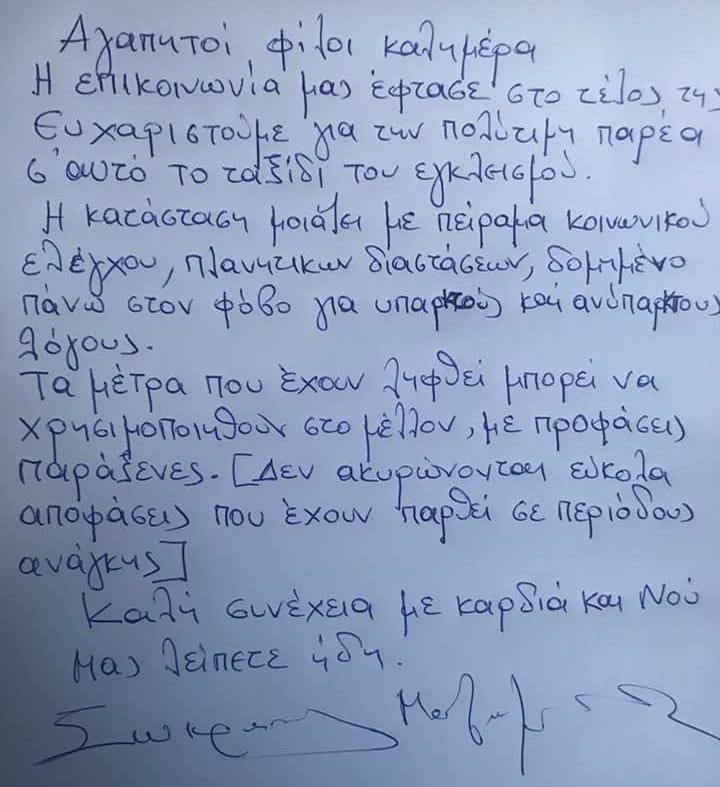 Αγαπητοί φίλοι καλημέρα
Η επικοινωνία μας έφτασε στο τέλος της
Ευχαριστούμε για την πολύτιμη παρέα
σ'αυτό το ταξίδι του εγκλεισμού.
Η κατάσταση μοιάζει με πείραμα κοινωνικού
ελέγχου, πλανητικών διαστάσεων, δομημένο
πάνω στον φόβο για υπαρκτούς και ανύπαρκτους
λόγους.
Τα μέτρα που έχουν ληφθεί μπορεί να
χρησιμοποιηθούν στο μέλλον, με προφάσεις
παράξενες. [Δεν ακυρώνονται εύκολα
αποφάσεις που έχουν παρθεί σε περιόδους
ανάγκης]
Καλή συνέχεια με καρδιά και Νού
Μας λείπετε ήδη.